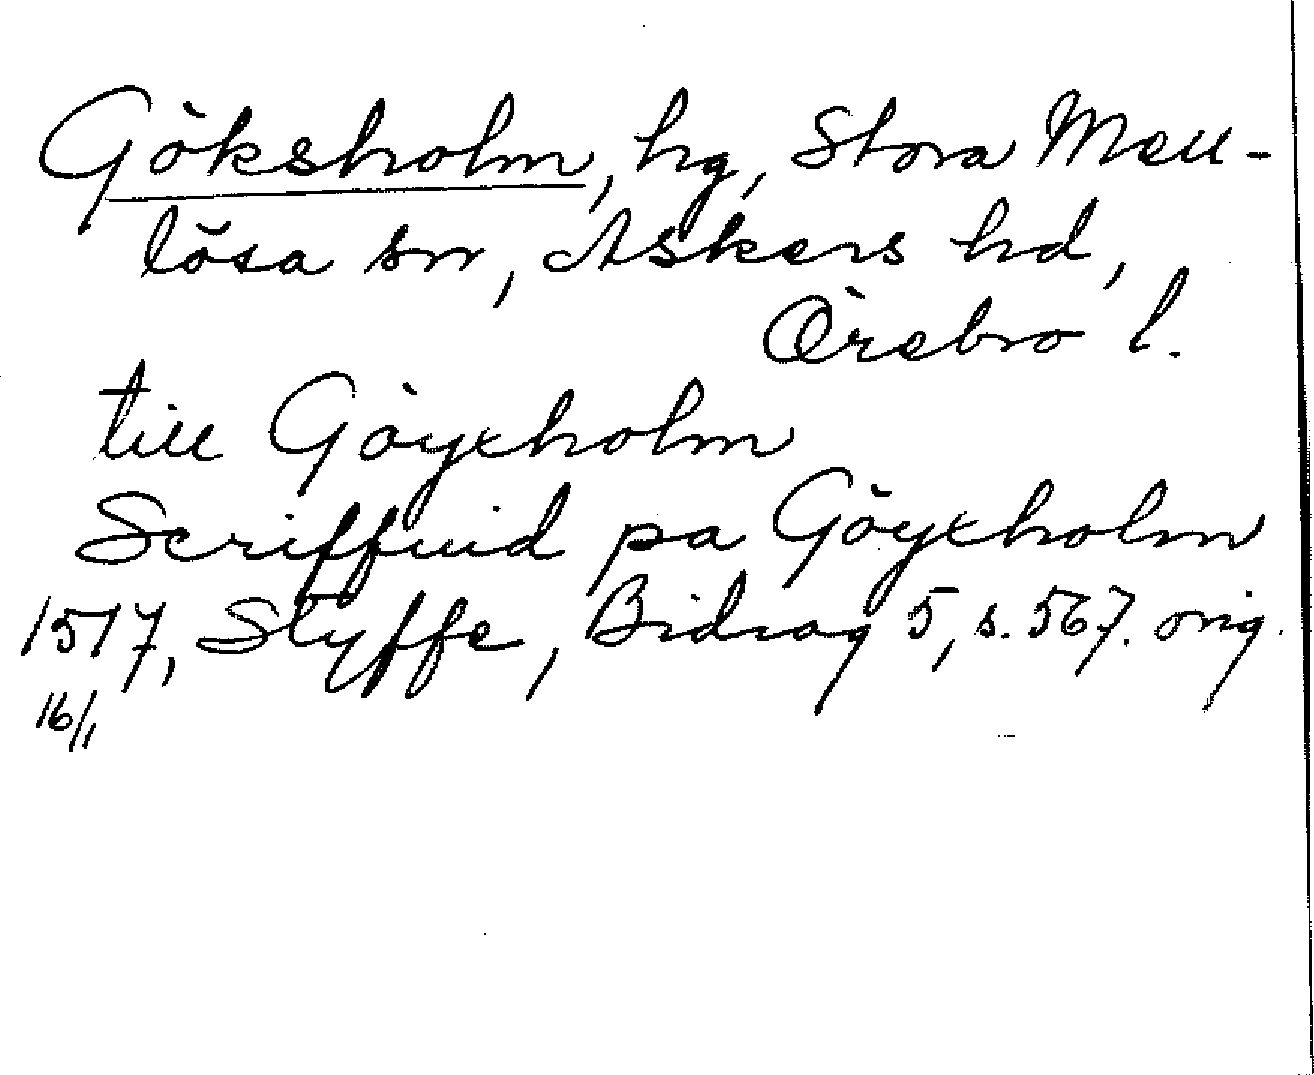 Göksholm, hg, Stora Mell-
lösa sn, Askers hd,
Örebro l.
till Göyxholm
Scriffuid pa Göyxholm
1517, Styffe, Bidrag 5, s. 567. orig.
16/1